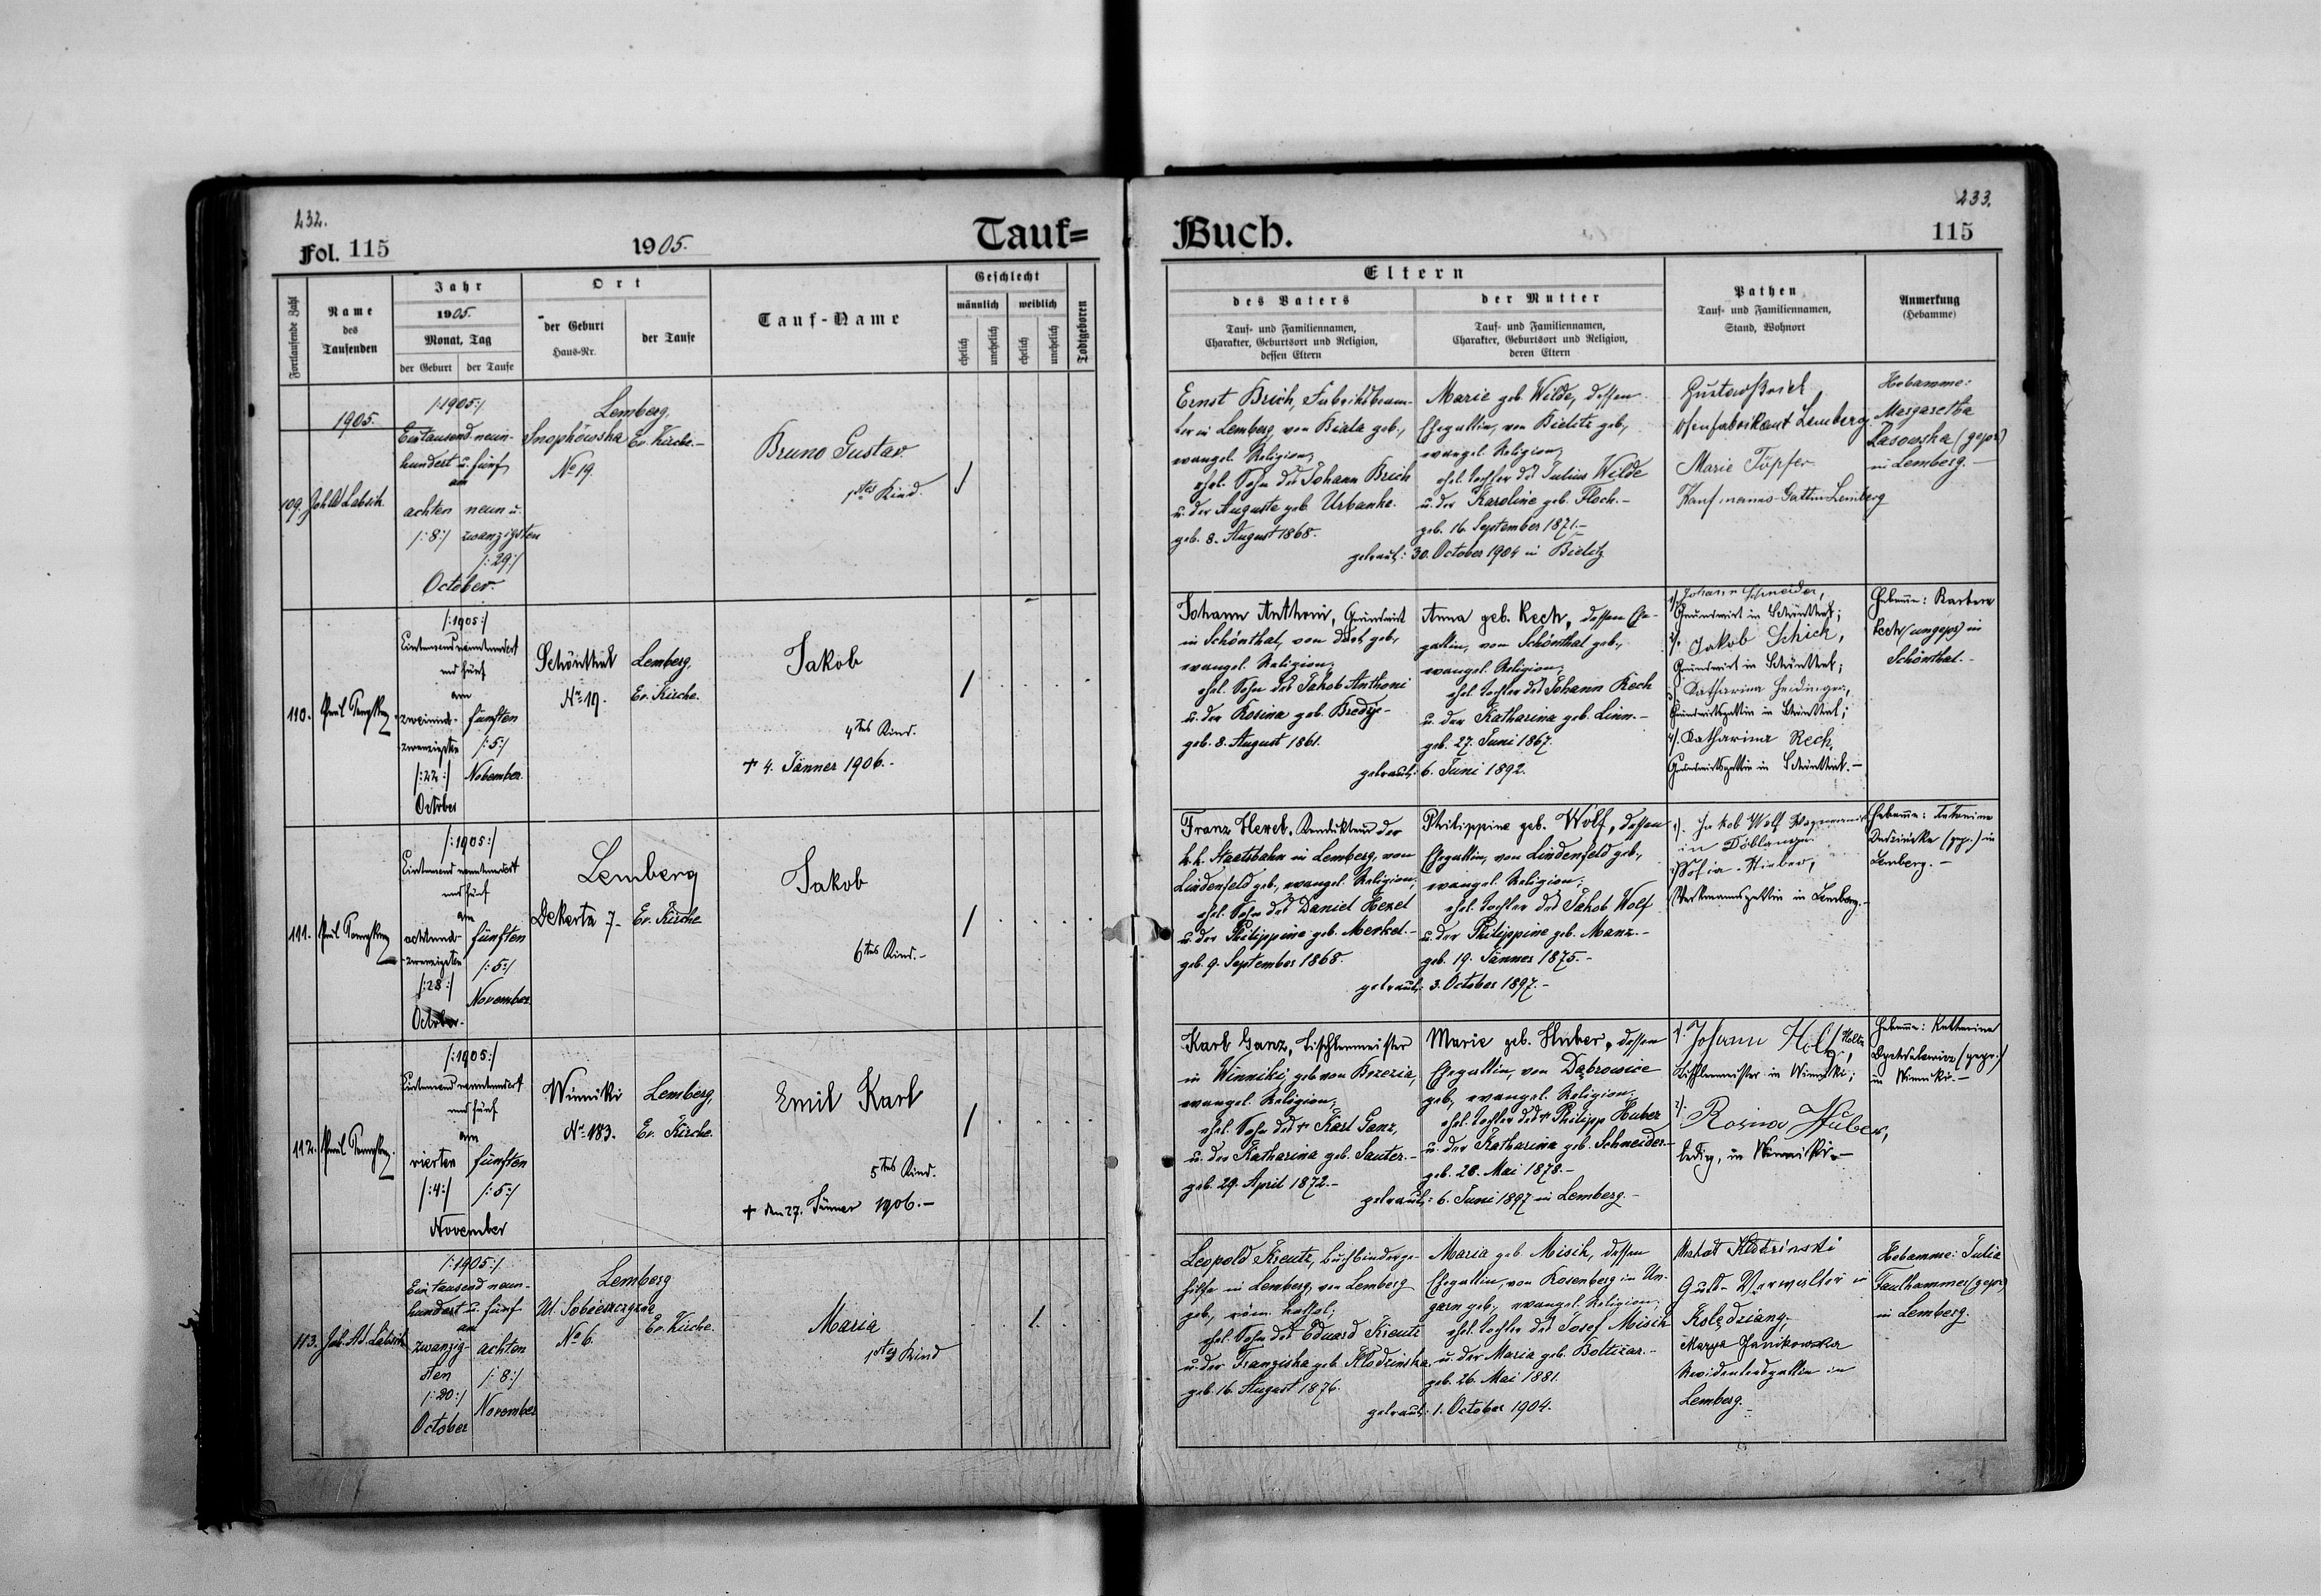 232.
Fol. 115
1905.
Tauf=
Fortlaufende Zahl
Name
des
Taufenden
Jahr
1905.
Monat, Tag
der Geburt
der Taufe
Ort
der Geburt
Haus-Nr.
der Taufe
Tauf-Name
Geschlecht
männlich
weiblich
ehelich
unehelich
ehelich
unehelich
Todtgeboren
1905.
109.
/:1905:/
Eintausend neun-
hundert u. fünf
am
achten
/:8:/
neun u.
zwanzigsten
/:29:/
October.
Lemberg,
No 19.
Ev. Kirche.-
Bruno Gustav.
1tes Kind.
110.
/:1905:/
Eintausendneunhundert
und fünf
am
zweiund-
zwanzigsten
/:22:/
October
fünften
/:5:/
November.
Schönthal
Nr 19.
Lemberg,
Ev. Kirche.
Jakob
4tes Kind.
+ 4. Jänner 1906.-
111.
/:1905:/
Eintausendneunhundert
und fünf
am
achtund-
zwanzigsten
/:28:/
October.
fünften
/:5:/
November
Lemberg
Dekerta 7.
Ev. Kirche
Jakob
6tes Kind.-
112.
/:1905:/
Eintausendneunhundert
und fünf
am
vierten
/:4:/
fünften
/:5:/
November
Winniki
Nr 183.
Lemberg,
Ev. Kirche.
Emil Karl
5tes Kind.
+ den 27. Jänner 1906.-
113.
/:1905:/
Eintausend neun-
hundert u. fünf
am
zwanzig-
sten
/:20:/
October
achten
/:8:/
November
Lemberg
No 6.
Ev. Kirche.
Maria
1tes Kind
233.
Buch.
115
Eltern
des Vaters
Tauf- und Familiennamen,
Charakter, Geburtsort und Religion,
dessen Eltern
der Mutter
Tauf- und Familiennamen,
Charakter, Geburtsort und Religion,
deren Eltern
Pathen
Tauf- und Familiennamen,
Stand, Wohnort
Anmerkung
(Hebamme)
Ernst Brich, Fabriksbeam-
ter in Lemberg, von Biala geb.,
evangel. Religion,
ehel. Sohn des Johann Brich
u. der Auguste geb. Urbanke.
geb. 8. August 1868.
Marie geb. Wilde, dessen
Ehegattin, von Bielitz geb.,
evangel. Religion,
ehel. Tochter des Julius Wilde
u. der Karoline geb. Floch.-
geb. 16. September 1871.-
getraut: 30. October 1904 in Bielitz
Ofenfabrikant Lemberg.
Marie Töpfer
Kaufmanns-Gattin Lemberg
Hebamme:
Margaretha
Lasowska (gepr.)
in Lemberg.-
Johann Anthoni, Grundwirt
in Schönthal, von dort geb.,
evangel. Religion,
ehel. Sohn des Jakob Anthoni
u. der Rosina geb. Bredy-
geb. 8. August 1861.
Anna geb. Rech, dessen Ehe-
gattin, von Schönthal geb.,
evangel. Religion,
ehel. Tochter des Johann Rech
u. der Katharina geb. Linn.-
geb. 27. Juni 1867.
getraut: 6. Juni 1892.
1/. Johann Schneider,
Grundwirt in Schönthal;
2/. Jakob Schick,
Grundwirt in Schönthal;
3/. Katharina Heidinger,
Grundwirtsgattin in Schönthal;
4/. Katharina Rech,
Grundwirtsgattin in Schönthal.-
Hebamme: Barbara
Rech (ungepr.) in
Schönthal.-
Franz Hexel, Kondukteur der
k.k. Staatsbahn in Lemberg, von
Lindenfeld geb., evangel. Religion,
ehel. Sohn des Daniel Hexel
u. der Philippine geb. Merkel.-
geb. 9. September 1868.
Philippine geb. Wolf, dessen
Ehegattin, von Lindenfeld geb.,
evangel. Religion;
ehel. Tochter des Jakob Wolf
u. der Philippine geb. Manz.-
geb. 19. Jänner 1875.-
getraut: 3. October 1897.-
1). Jakob Wolf
in
Sofia Hieber,
in Lemberg.-
Hebamme: Antonina
(gepr.) in
Lemberg.-
Karl Ganz, Tischlermeister
in Winniki, geb. von Brzezia,
evangel. Religion,
ehel. Sohn des + Karl Ganz,
u. der Katharina geb. Sauter.-
geb. 29. April 1872.-
Marie geb. Huber, dessen
Ehegattin, von Dąbrowice
geb., evangel. Religion;
ehel. Tochter des + Philipp Huber
u. der Katharina geb. Schneider.-
geb. 28. Mai 1878.-
getraut: 6. Juni 1897 in Lemberg.-
1). Johann
Tischlermeister in Winniki;
2). Rosina Huber,
ledig, in Winniki.-
Hebamme: Katharina
(gepr.)
in Winniki.-
Leopold Kreutz, Buchbinderge-
hilfe in Lemberg, von Lemberg
geb., röm. kathol.;
ehel. Sohn des Eduard Kreutz
u. der Franziska geb. Klodzinska
geb. 16. August 1876.
Maria geb. Misik, dessen
Ehegattin, von Rosenberg in Un-
garn geb., evangel. Religion;
ehel. Tochter des Josef Misik
u. der Maria geb. Boltizar.-
geb. 26. Mai 1881.
getraut: 1. October 1904.
Guts-Verwalter in
Marya Janikowska
in
Lemberg.
Hebamme: Julia
Faulhammer (gepr.)
in Lemberg.